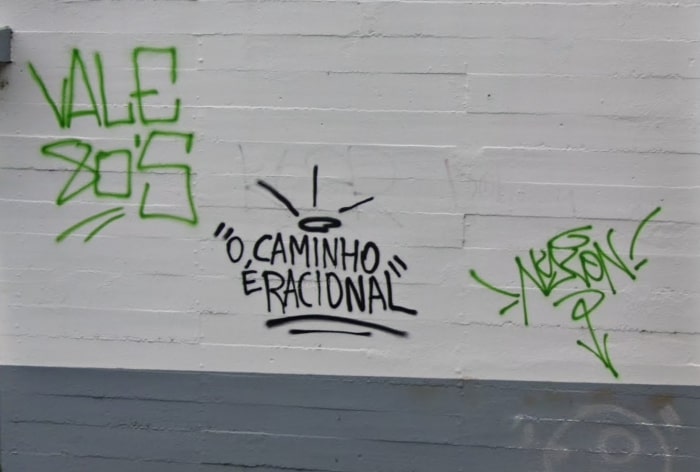 VALE
80'S
"O CAMINHO
É RACIONAL"